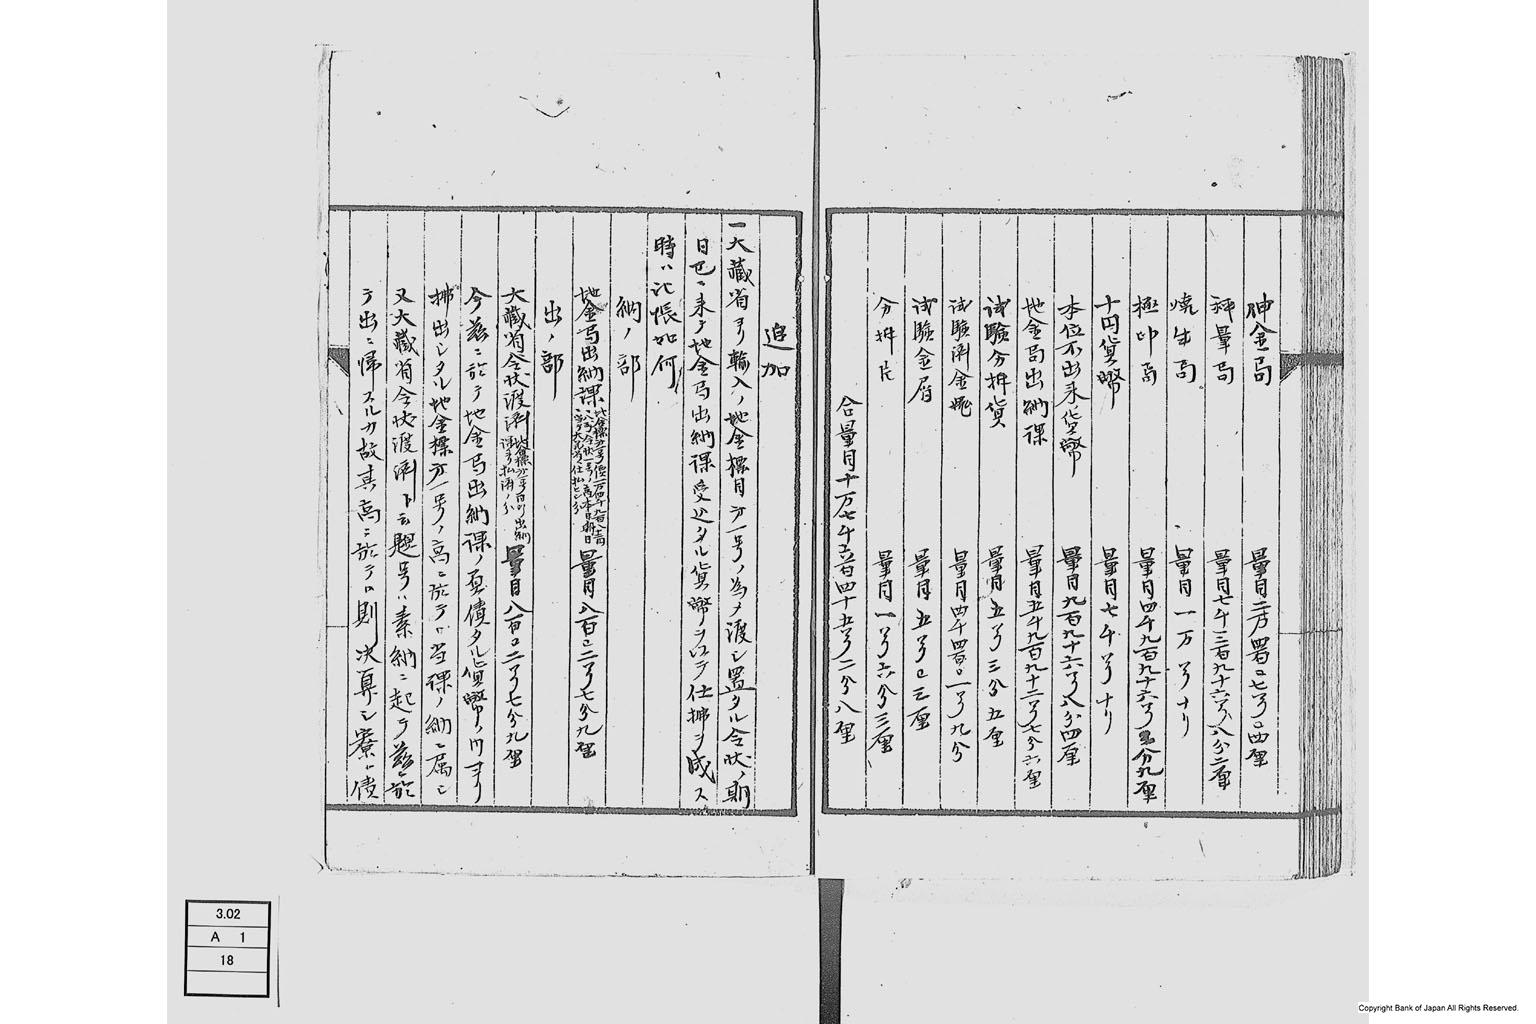 伸金局 量目二万四百〇七ヲ〇四厘
秤量局 量目七千三百九十六ヲ八分二厘
焼生局 量目一万ヲナリ
極印局 量目四千九百九十六ヲ 分九厘
十円貨幣 量目七千ヲナリ
本位不出来貨幣 量目九百九十六ヲ八分四厘
地金局出納課 量目五千九百九十二ヲ七分六厘
試験分析貨 量目五ヲ三分五厘
試験済金 量目四千四百〇一ヲ九分
試験金屑 量目五ヲ〇三厘
分析片 量目一ヲ六分三厘
合量目十万七千六百四十五ヲ二分八厘
追加
一大蔵省ヨリ輸入ノ地金標目第一号ノ為メ渡シ置タル令状ノ期
日已ニ来テ地金局出納課受込タル貨幣ヲ以テ仕拂ヲ成ス
時ハ此帳如何
納ノ部
地金局出納課 量目八百〇二ヲ七分九厘
出ノ部
大蔵省令状渡済 量目八百〇二ヲ七分九厘
今茲ニ於テ地金局出納課ノ負債タル貨幣ノ内ヨリ
拂出シタル地金標第一号ノ高ニ於テハ当課ノ納ニ属シ
又大蔵省令状渡済ト云題号ハ素納ニ起テ茲ニ於
テ出ニ帰スルカ故其高ニ於テハ則決算シ寮ハ債
3.02
A 1
18
Copyright Bank of Japan All Rights Reserved.